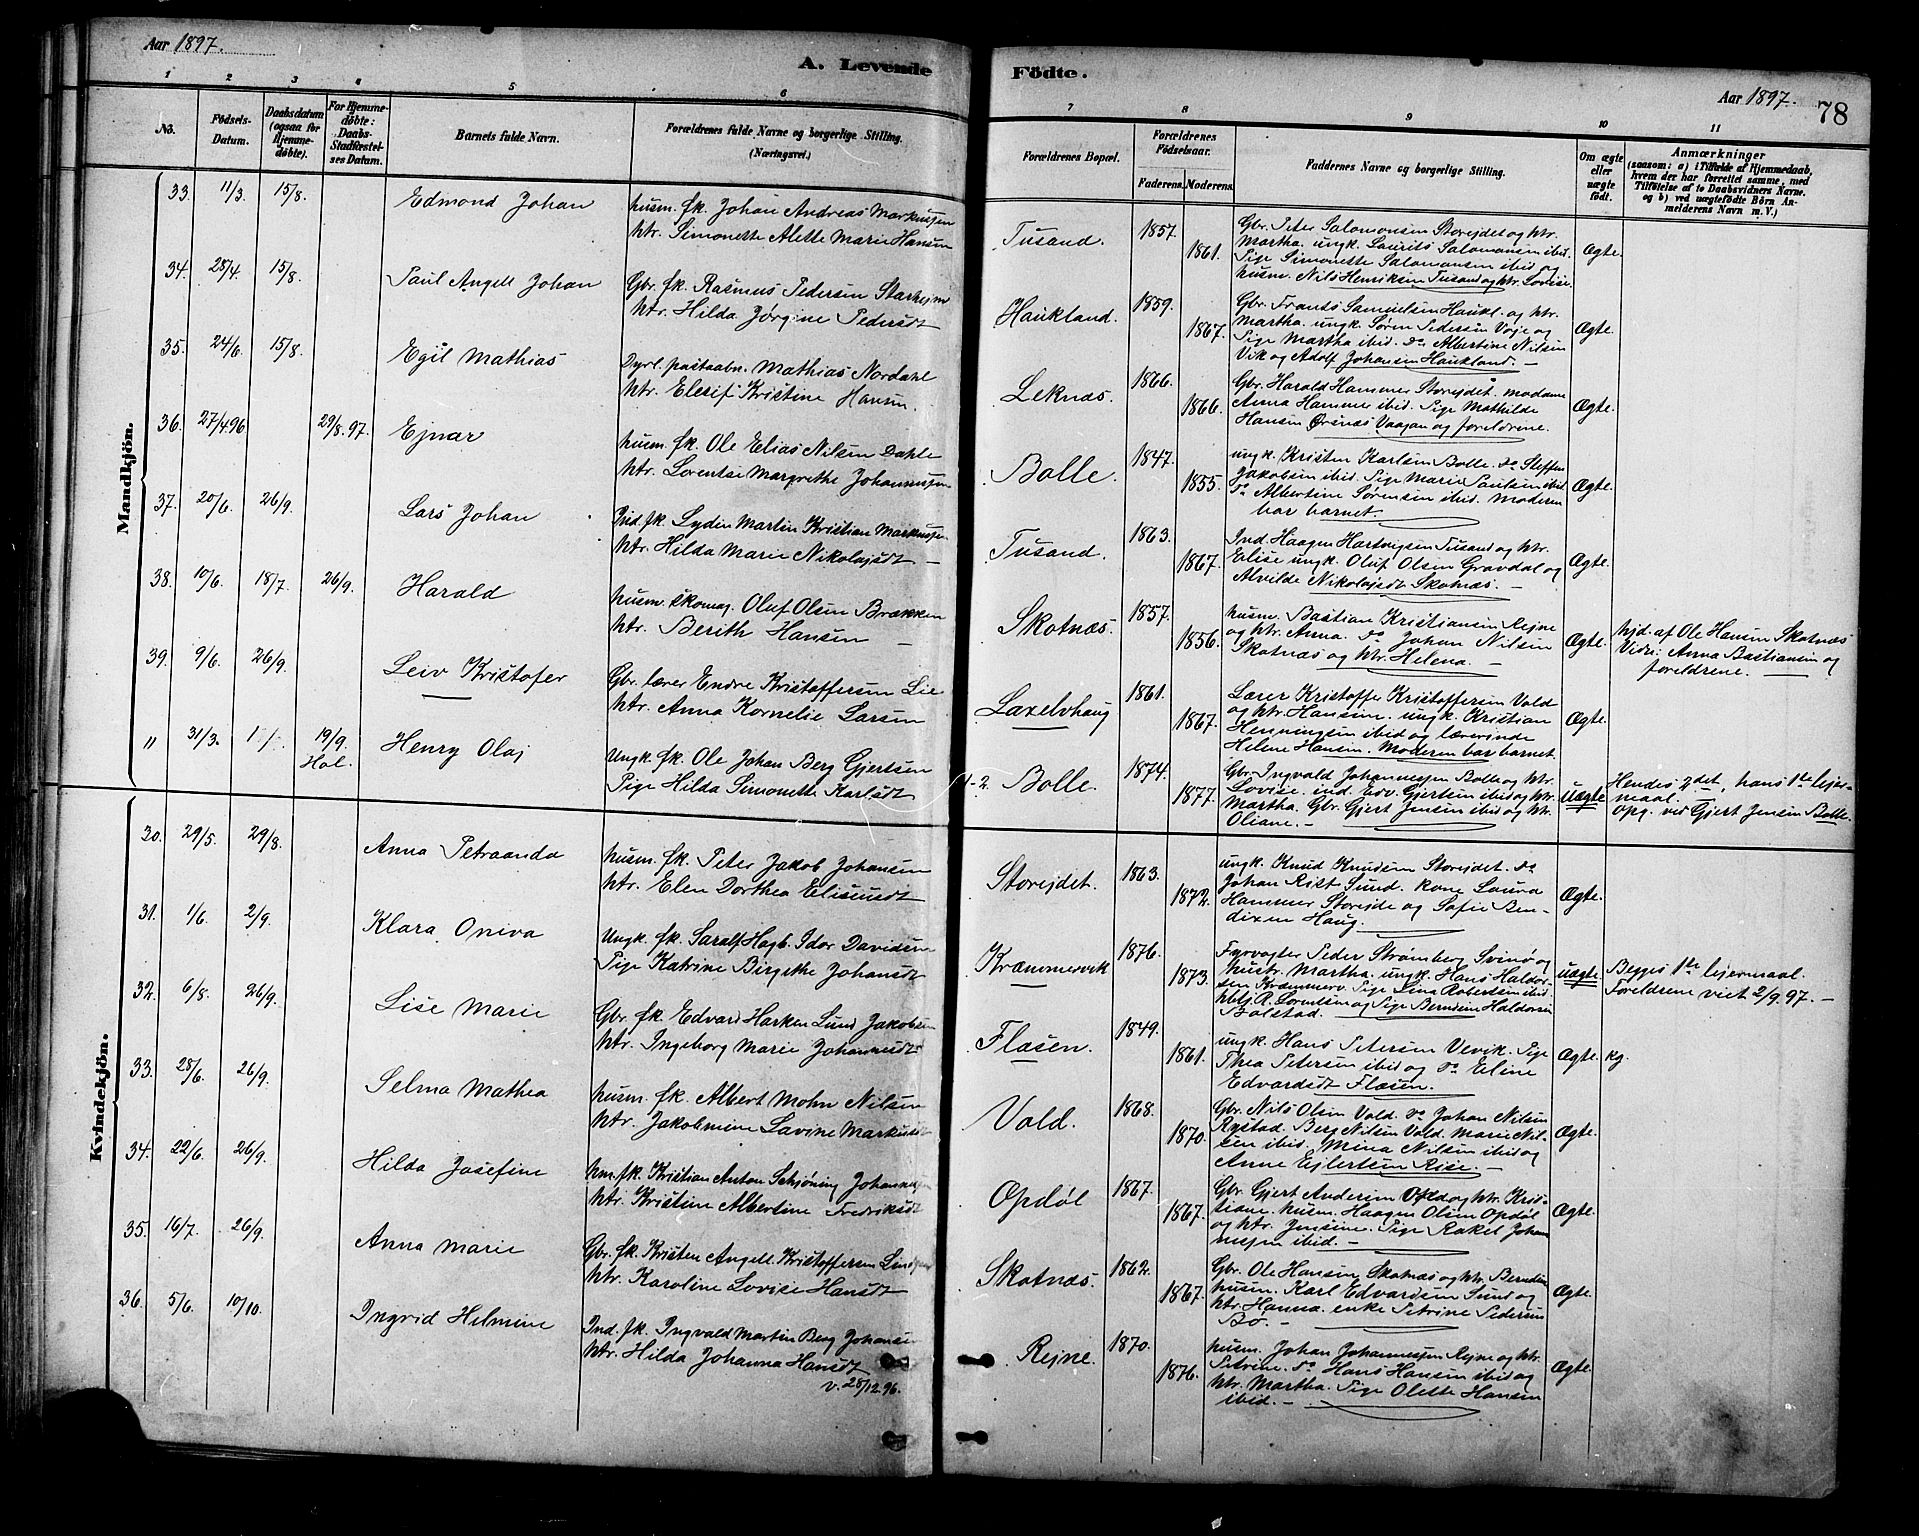 Aar 1897.
A. Levende
1 2 3 4 5 6
No.
Födsels-Datum.
Daabsdatum (ogsaa for Hjemmedöbte).
For Hjemmedöbte: Daabs-Stadfæstelses Datum.
Barnets fulde Navn.
Forældrenes fulde Navne og borgerlige Stilling.
(Næringsvei.)
Mandkjön.
33. 11/3 15/8. Edmond Johan
husm. fk. Johan Andreas Markussen
htr. Simonette Alette Marie Hansen
34. 28/4. 15/8. Paul Angell Johan
Gbr. fk. Rasmus Pedersen Starheim
htr. Hilda Jørgine Pedersdt
35. 24/6. 15/8. Egil Mathias
Dyrl. postaabn. Mathias Nordahl
htr. Elesif Kristine Hansen.
36. 27/4 96 29/8.97. Ejnar
husm. fk. Ole Elias Nilsen Dahle
htr. Lorentse Margrethe Johannesen
37. 20/6. 26/9. Lars Johan
Ind. fk. Lyder Martin Kristian Markussen
htr. Hilda Marie Nikolajsdt
38. 10/6. 18/7. 26/9. Harald
husm. skomag. Oluf Olsen Brækken
htr. Berith Hansen
39. 9/6. 26/9. Leiv Kristofer
Gbr. lærer Endre Kristoffersen Lie
htr. Anna Kornelie Larsen
" 31/3. 19/9. Hol. Henry Olaj
Ungk. fk. Ole Johan Berg Gjertsen
Pige Hilda Simonette Karlsdt
Kvindekjön.
30. 29/5. 29/8. Anna Petraanda
husm. fk. Peter Jakob Johansen
htr. Elen Dorthea Elisiusdt
31. 1/6. 2/9. Klara Oniva
Ungk. fk. Saralf Hagb. Idor Davidsen
Pige Katrine Birgithe Johansdt
32. 6/8. 26/9. Lise Marie
Gbr. fk. Edvard Harken Lund Jakobsen
htr. Ingeborg Marie Johannesdt
33. 28/6. 26/9. Selma Mathea
husm. fk. Albert Mohn Nilsen
htr. Jakobmine Lavine Markusdt
34. 22/6. 26/9. Hilda Josefine
hm. fk. Kristian Anton Schjøning Johannessen
htr. Kristine Albertine Fredriksdt
35. 16/7. 26/9. Anna Marie
Gbr. fk. Kristen Angell Kristoffersen
htr. Karoline Lovise Hansdt
36. 5/6. 10/10. Ingrid Helmine
Ind. fk. Ingvald Martin Berg Johansen
htr. Hilda Johanna Hansdt
v. 28/12 96.
Födte.
Aar 1897.
78
7 8 9 10 11
Forældrenes Bopæl.
Forældrenes Födselsaar.
Faderens. Moderens.
Faddernes Navne og borgerlige Stilling.
Om ægte eller uægte födt.
Anmærkninger
(saasom: a) i Tilfælde af Hjemmedaab, hvem der har forrettet samme, med Tilföielse af to Daabsvidners Navne. og b) ved uægtefödte Börn Anmelderens Navn m. V.)
Tusand. 1857. 1861.
Gbr. Peter Salomonsen Storejdet og htr.
Martha. ungk. Laurits Salomonsen ibid.
Pige Simonette Salomonsen ibid og
husm. Nils Henriksen Tusand og htr. Lovise.
Ægte.
Haukland. 1859. 1867.
Gbr. Frants Samuelsen Haukl. og htr.
Martha. ungk. Søren Pedersen Voje og
Pige Martha ibid. do Albertine Nilsen
Vik og Adolf Johansen Haukland.
Ægte.
Leknæs. 1866. 1866.
Gbr. Harald Hammer Storejdet. madame
Anna Hammer ibid. Pige Mathilde
Hansen Ørsnæs Vaagan og foreldrene.
Ægte.
Bolle. 1847. 1855.
ungk. Kristen Karlsen Bolle. do Steffen
Jakobsen ibid. Pige Marie Paulsen ibid
do Albertine Sørensen ibid. Moderen
bar barnet.
Ægte.
Tusand. 1863. 1867.
Ind. Haagen Hartvigsen Tusand og htr.
Elise ungk. Oluf Olsen Gravdal og
Alvilde Nikolajsdt Skotnæs.
Ægte.
Skotnæs. 1857. 1856.
husm. Bastian Kristiansen Rejne
og htr. Anna. do Johan Nilsen
Skotnæs og htr. Helena.
Ægte.
hjd. af Ole Hansen Skotnæs
Vidn: Anna Bastiansen og
foreldrene.
Laxelvhaug 1861. 1867.
Lærer Kristoffe Kristoffersen Vold
og htr. Hansine. ungk. Kristian
Henningsen ibid og lærerinde
Helene Hansen. Moderen bar barnet.
Ægte.
1-2. Bolle. 1874. 1877.
Gbr. Ingvald Johannessen Bolle og htr.
Lovise. ind. Edv. Gjertsen ibid og htr.
Martha. Gbr. Gjert Jensen ibid og htr.
Oliane.
uægte
Hendes 2det, hans 1te lejermaal.
opg. ved Gjert Jensen Bolle.
Storejdet. 1863. 1872.
ungk. Knud Knudsen Storejdet. do
Johan Rist Sund. kone Laura
Hammer Storejde og Sofie Bendixen Haug.
Ægte.
Kræmmervik 1876. 1873.
Fyrvogter Peder Strømberg Svinø og
hustr. Martha. ungk. Hans Haldorsen Kræmmerv. Pige Lina Robertsen ibid
hbtj. R. Lorentsen og Pige Berndine Haldorsen
Balstad.
uægte
Begges 1te lejermaal.
Foreldrene viet 2/9.97.
Flæsen. 1849. 1861.
ungk. Hans Petersen Vevik. Pige
Thea Petersen ibid og do Eline
Edvardsdt Flæsen.
Ægte. kg.
Vold. 1868. 1870.
Gbr. Nils Olsen Vold. do Johan Nilsen
Rystad. Berg Nilsen Vold. Marie Nilsen ibid. Mina Nilsen ibid og
Anne Ejlertsen Rise.
Ægte.
Opdøl 1867. 1867.
Gbr. Gjert Andersen Opld og htr. Kristiane. husm. Haagen Olsen Opdøl
og htr. Jensine. Pige Rakel Johannessen ibid.
Ægte.
Skotnæs. 1862. 1867.
Gbr. Ole Hansen Skotnæs og htr. Berndine
husm. Karl Edvardsen Sund og
htr. Hanna. enke Petrine Pedersen
Bø.
Ægte.
Rejne. 1870. 1876.
husm. Johan Johannessen Rejne og htr.
Petrine. do Hans Hansen ibid og
htr. Martha. Pige Olette Hansen
ibid.
Ægte.